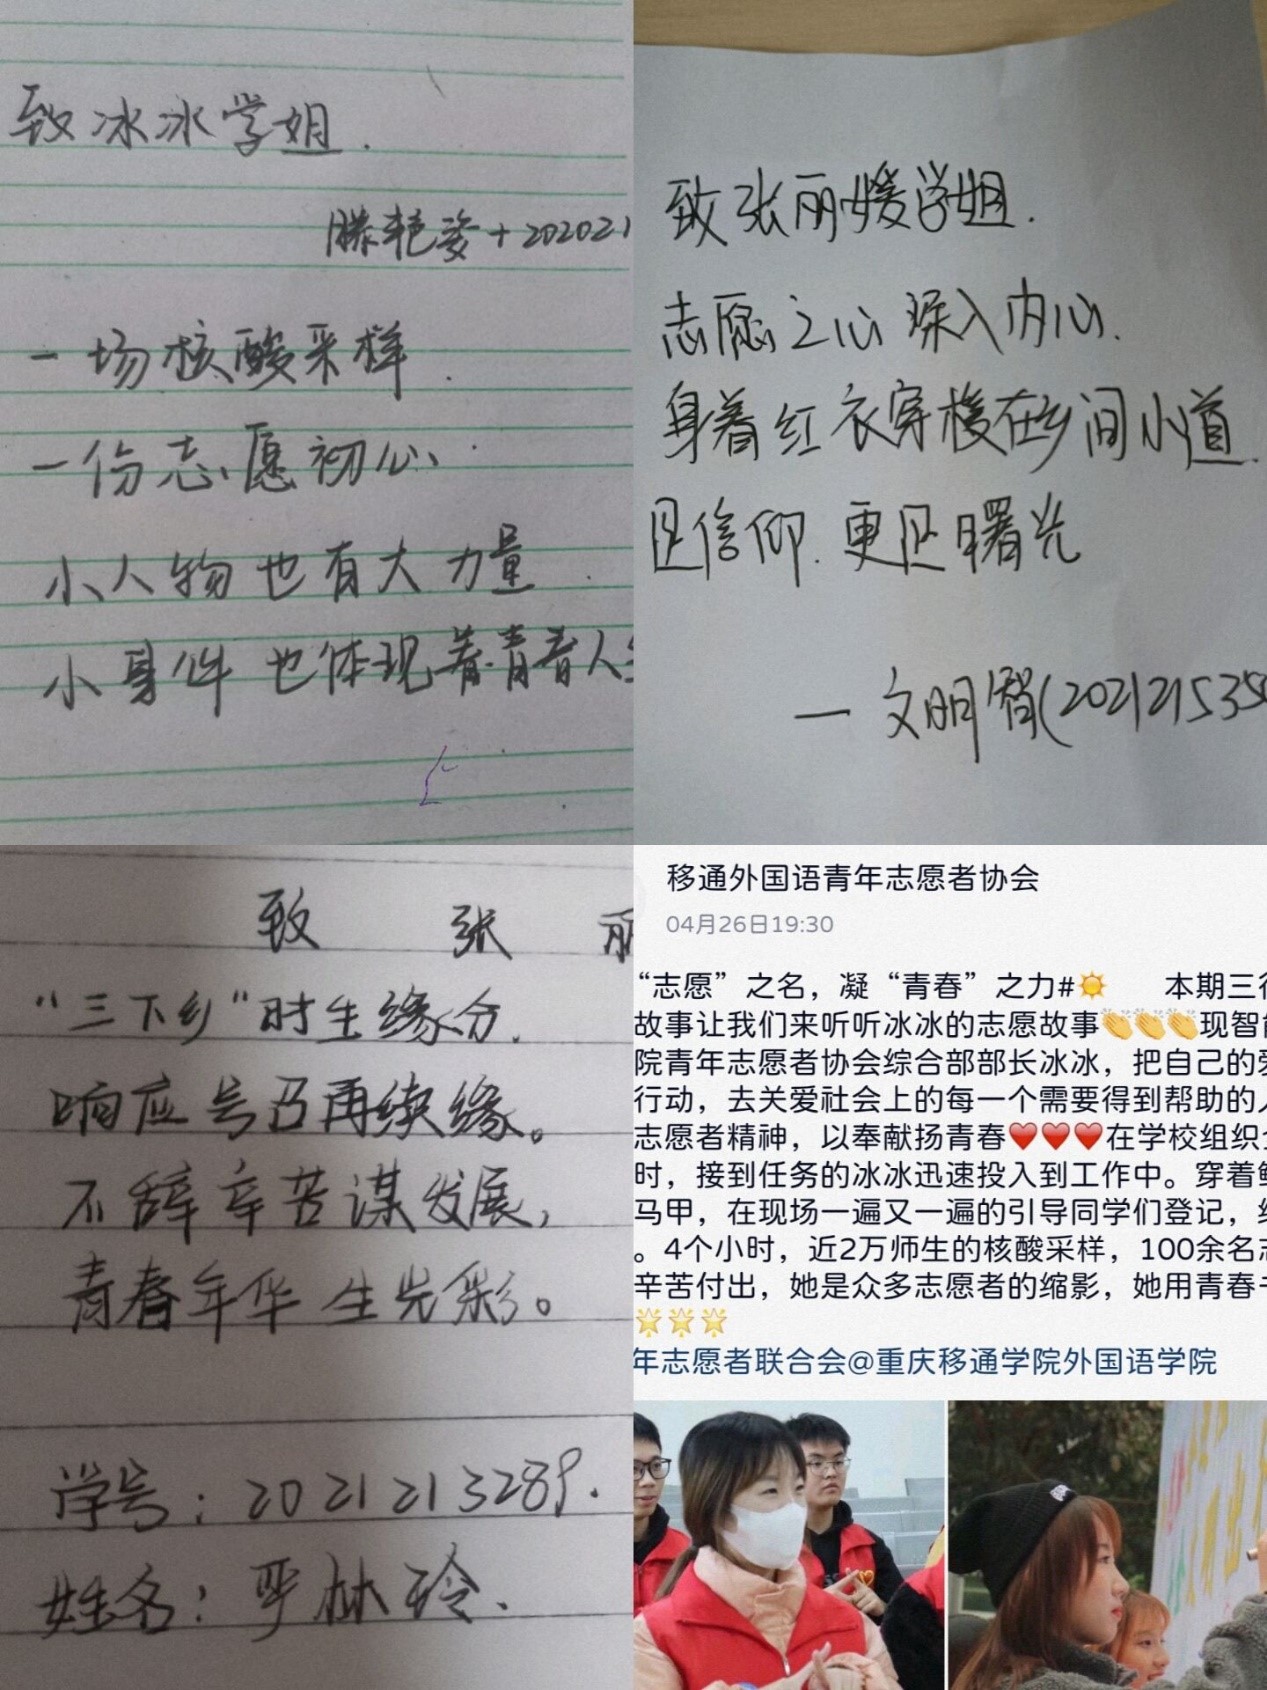 致冰冰学姐.
滕艳姿+202021
一场核酸采样.
一份志愿初心.
小人物也有大力量.
小身件也体现着青春人生
致张丽媛学姐.
志愿之心 深入内心.
身着红衣穿梭在乡间小道.
见信仰.更见曙光
— 文明智(202121535
致 张 丽
“三下乡”时生缘分.
响应号召再续缘。
不辞辛苦谋发展,
青春年华生光彩。
学号:2021213289.
姓名:严林玲.
移通外国语青年志愿者协会
04月26日19:30
“志愿”之名，凝“青春”之力#☀ 本期三行
故事让我们来听听冰冰的志愿故事👏👏👏现智能
院青年志愿者协会综合部部长冰冰，把自己的爱
行动，去关爱社会上的每一个需要得到帮助的人
志愿者精神，以奉献扬青春❤❤❤在学校组织全
时，接到任务的冰冰迅速投入到工作中。穿着鲜
马甲，在现场一遍又一遍的引导同学们登记，维
。4个小时，近2万师生的核酸采样，100余名志
辛苦付出，她是众多志愿者的缩影，她用青春书
🌟🌟🌟
年志愿者联合会@重庆移通学院外国语学院